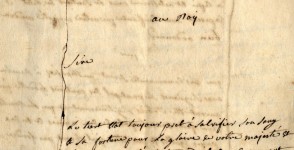 au Roy
Sire
Le tiers Etat toujours pret à sacrifier son sang
& sa fortune pour La gloire de votre majesté &